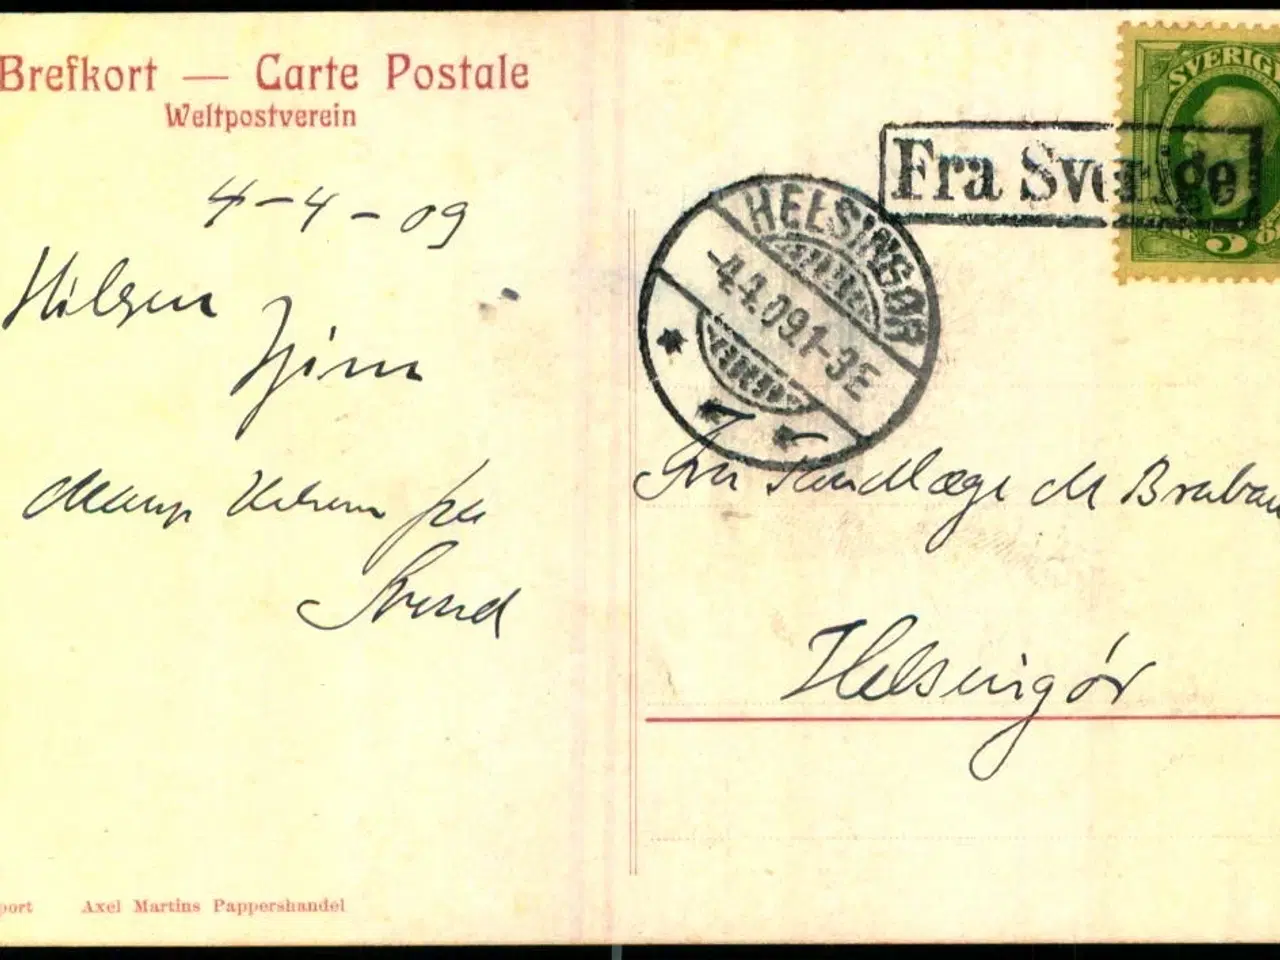 Brefkort — Carte Postale
Weltpostverein
4-4-09
Hilsen
Mange Hilsen fra
Svend
port Axel Martins Pappershandel
SVERIGE
5
Fra Sverige
HELSINGØR
-4.4.09.1-3E
Fru Tandlæge M Braban
Helsingór